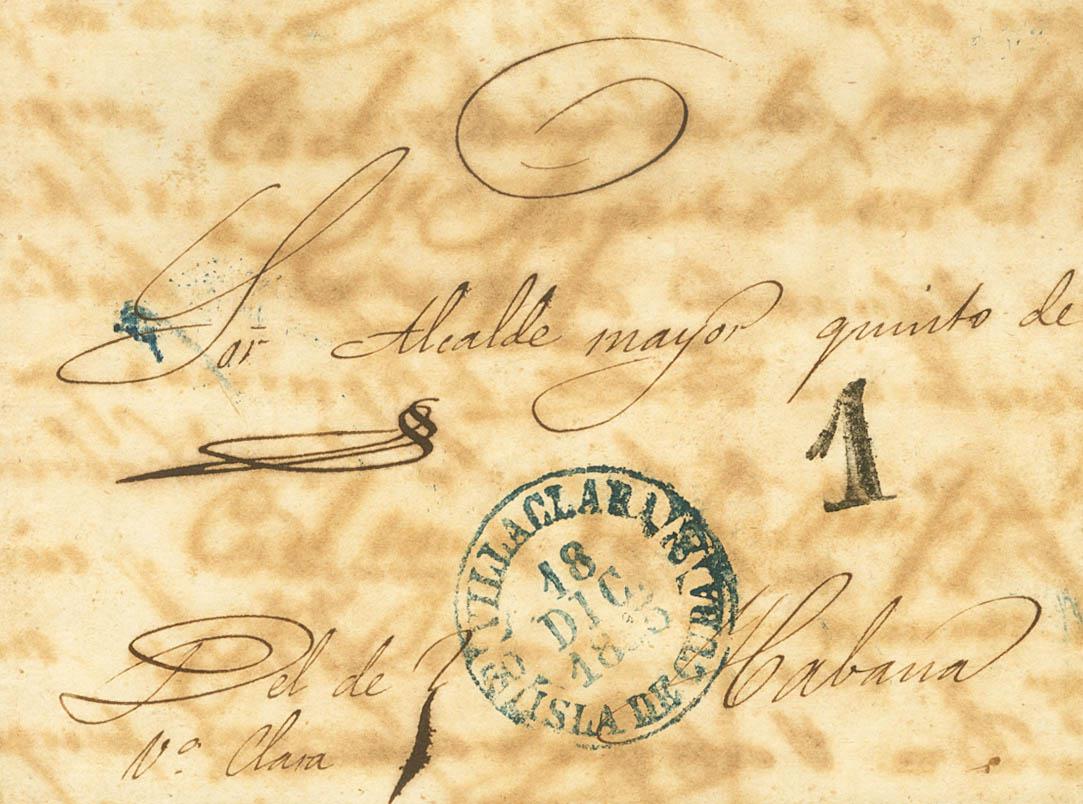 Sor Alcalde mayor quinto de
1
VILLACLARA
18
DIC.
ISLA DE CUBA
Del de Habana
Va. Clara